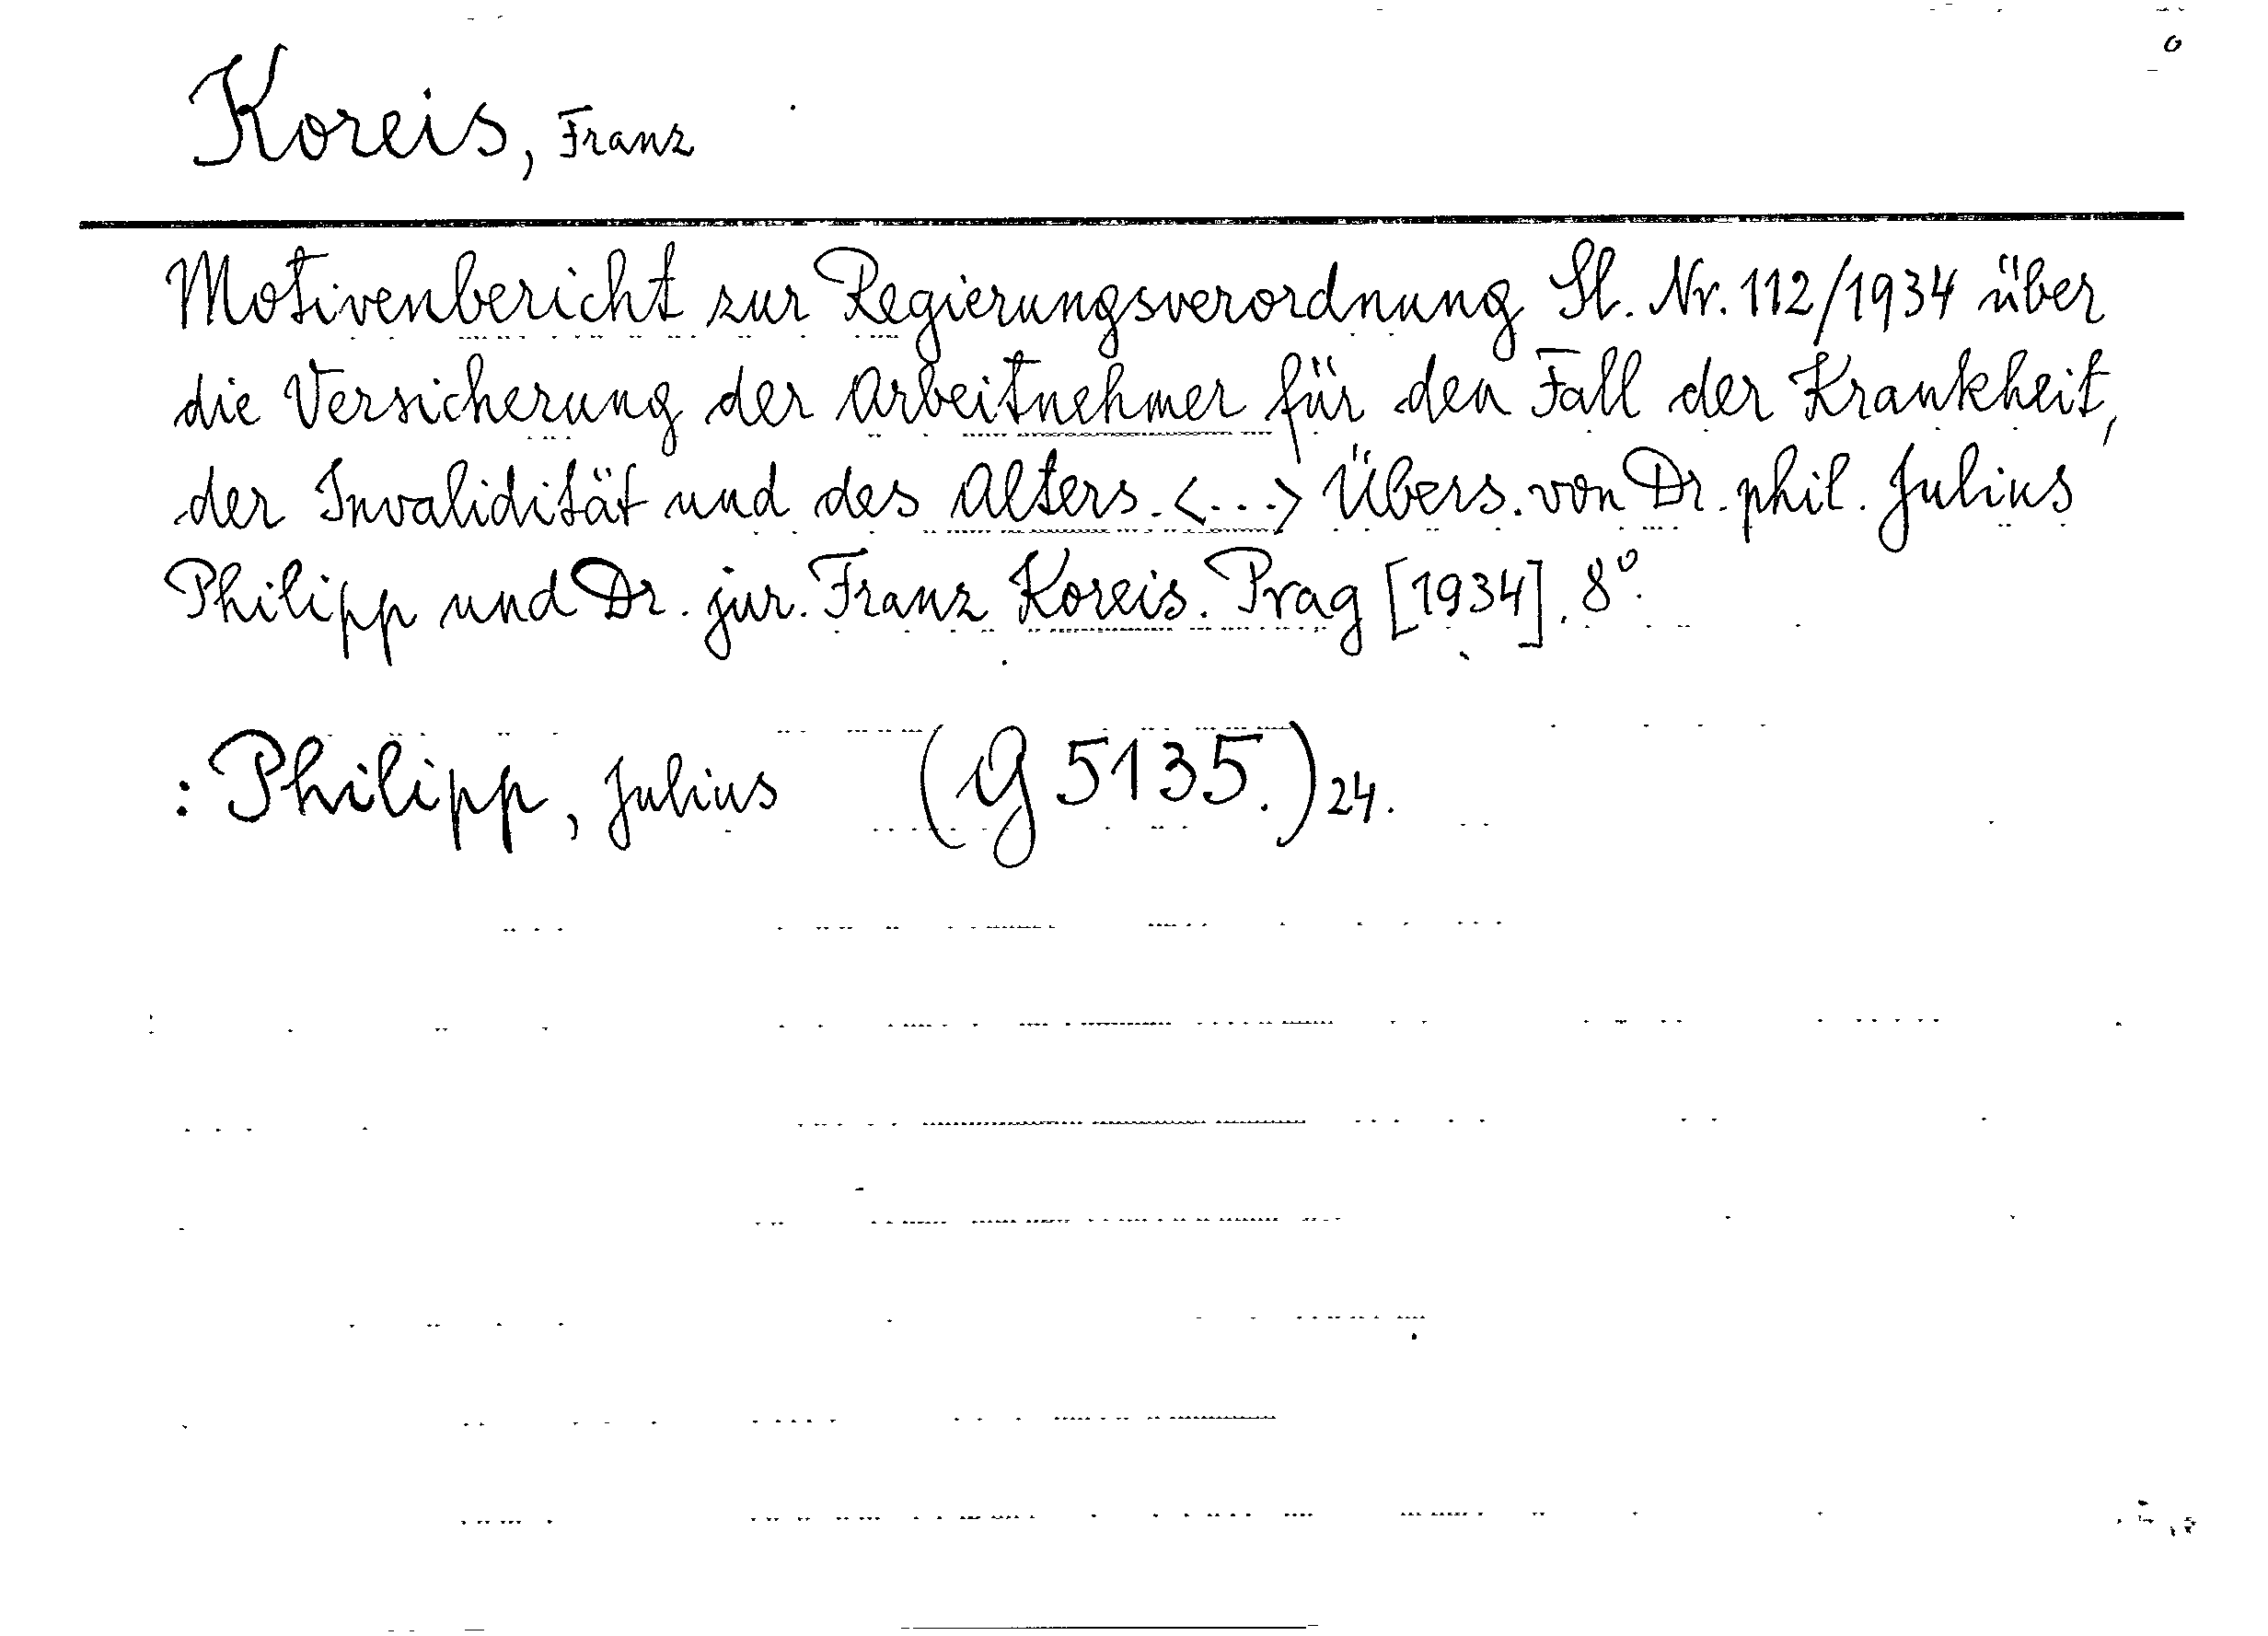 Koreis, Franz
Motivenbericht zur Regierungsverordnung Sl. Nr. 112/1934 über
die Versicherung der Arbeitnehmer für den Fall der Krankheit,
der Invalidität und des Alters. <...> Übers. von Dr. phil. Julius
Philipp und Dr. jur. Franz Koreis. Prag [1934]. 8°.
: Philipp, Julius (G 5135.) 24.